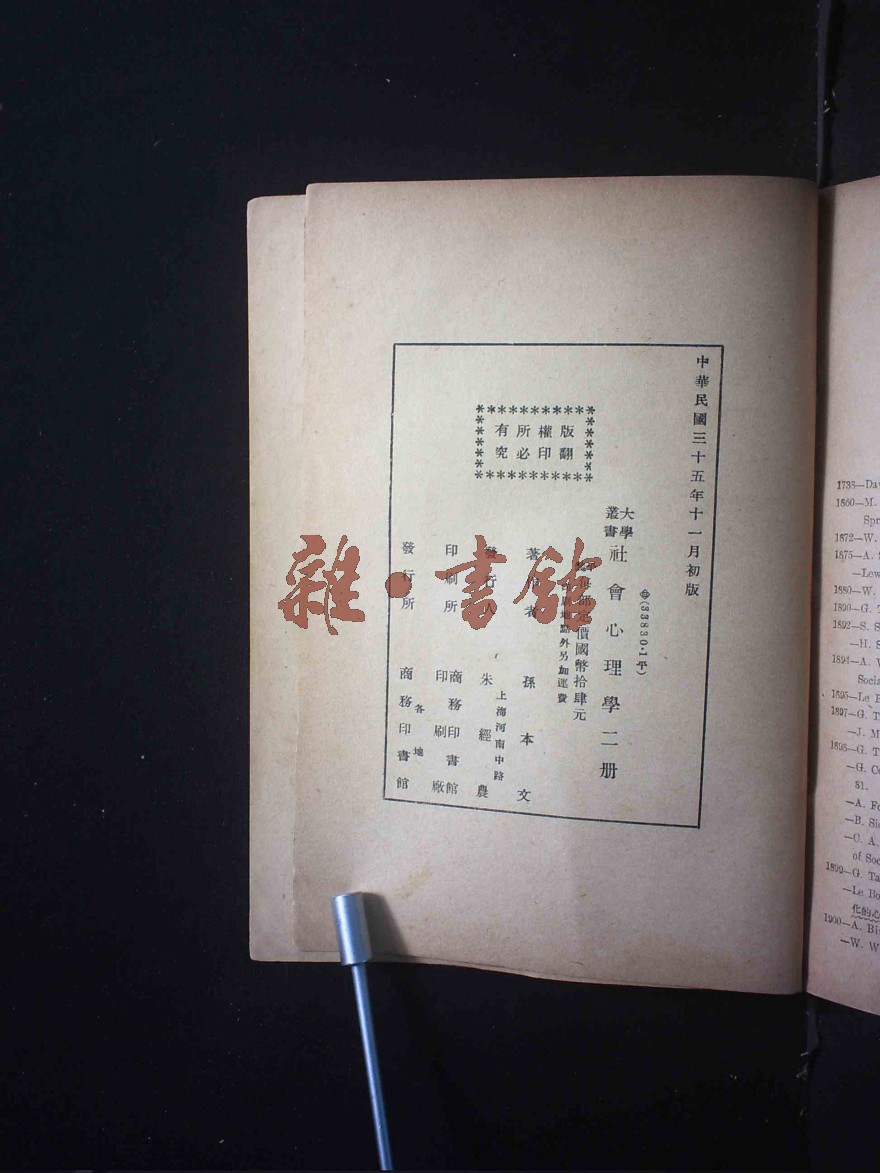 中華民國三十五年十一月初版
版權所有
翻印必究
大學叢書
社會心理學二册
(33830·1平)
定價國幣拾肆元
印刷地點外另加運費
著作者 孫本文
上海河南中路
發行人 朱經農
印刷所 商務印書館印刷廠
各地
發行所 商務印書館
雜·書館
1860—M.
Spr
1872—W.
1875—A.
—Lew
1880—W.
1890—G. T
1892—S. S
—H. S
1894—A. V
Socia
1895—Le B
1897—G. T
—J. M
1898—G. T
—G. Co
81.
—A. Fo
—B. Sid
—C. A.
of Soc
1899—G. Ta
—Le Bo
化的心
1900—A. Bi
—W. W